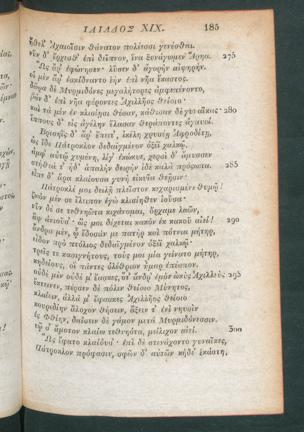 ΙΛΙΑΔΟΣ XIX. 185
ἤθεῖ' Ἀχαιοῖσιν θάνατον πολέεσσι γενέσθαι.
νῦν δ' ἔρχεσθ' ἐπὶ δεῖπνον, ἵνα ξυνάγωμεν Ἄρηα. 275
Ὣς ἄρ' ἐφώνησεν· λῦσεν δ' ἀγορὴν αἰψηρήν.
οἱ μὲν ἄρ' ἐσκίδναντο ἑὴν ἐπὶ νῆα ἕκαστος.
δῶρα δὲ Μυρμιδόνες μεγαλήτορες ἀμφεπένοντο,
βὰν δ' ἐπὶ νῆα φέροντες Ἀχιλλῆος θείοιο·
καὶ τὰ μὲν ἐν κλισίῃσι θέσαν, κάθισαν δὲ γυναῖκας· 280
ἵππους δ' εἰς ἀγέλην ἔλασαν θεράποντες ἀγαυοί.
Βρισηῒς δ' ἄρ' ἔπειτ', ἰκέλη χρυσέῃ Ἀφροδίτῃ,
ὡς ἴδε Πάτροκλον δεδαϊγμένον ὀξέϊ χαλκῷ,
ἀμφ' αὐτῷ χυμένη, λίγ' ἐκώκυε, χερσὶ δ' ἄμυσσεν
στήθεά τ' ἠδ' ἁπαλὴν δειρὴν ἰδὲ καλὰ πρόσωπα. 285
εἶπε δ' ἄρα κλαίουσα γυνὴ εἰκυῖα θεῇσιν·
Πάτροκλέ μοι δειλῇ πλεῖστον κεχαρισμένε θυμῷ!
ζωὸν μέν σε ἔλειπον ἐγὼ κλισίηθεν ἰοῦσα·
νῦν δέ σε τεθνηῶτα κιχάνομαι, ὄρχαμε λαῶν,
ἂψ ἀνιοῦσ'· ὥς μοι δέχεται κακὸν ἐκ κακοῦ αἰεί! 290
ἄνδρα μέν, ᾧ ἔδοσάν με πατὴρ καὶ πότνια μήτηρ,
εἶδον πρὸ πτόλιος δεδαϊγμένον ὀξέϊ χαλκῷ·
τρεῖς τε κασιγνήτους, τούς μοι μία γείνατο μήτηρ,
κηδείους, οἳ πάντες ὀλέθριον ἦμαρ ἐπέσπον.
οὐδὲ μὲν οὐδέ μ' ἔασκες, ὅτ' ἄνδρ' ἐμὸν ὠκὺς Ἀχιλλεὺς 295
ἔκτεινεν, πέρσεν δὲ πόλιν θείοιο Μύνητος,
κλαίειν, ἀλλά μ' ἔφασκες Ἀχιλλῆος θείοιο
κουριδίην ἄλοχον θήσειν, ἄξειν τ' ἐνὶ νηυσὶν
ἐς Φθίην, δαίσειν δὲ γάμον μετὰ Μυρμιδόνεσσιν.
τῷ σ' ἄμοτον κλαίω τεθνηότα, μείλιχον αἰεί. 300
Ὣς ἔφατο κλαίουσ'· ἐπὶ δὲ στενάχοντο γυναῖκες,
Πάτροκλον πρόφασιν, σφῶν δ' αὐτῶν κήδε' ἑκάστη.